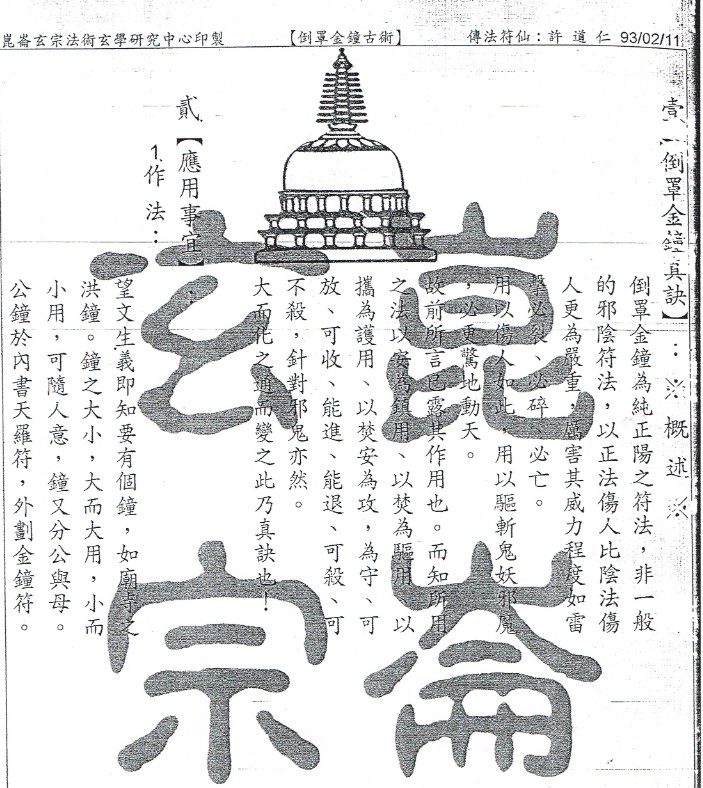 崑崙玄宗法術玄學研究中心印製 【倒罩金鐘古術】 傳法符仙：許道仁 93/02/11
壹【倒罩金鐘真訣】：※概述※
倒罩金鐘為純正陽之符法，非一般
的邪陰符法，以正法傷人比陰法傷
人更為嚴重，厲害其威力程度如雷
擊必裂、必碎、必亡。
用以傷人如此，用以驅斬鬼妖邪魔
，必更驚地動天。
故前所言已露其作用也。而知所用
之法以安為鎮用、以焚為驅用、以
攜為護用、以焚安為攻，為守、可
放、可收、能進、能退、可殺、可
不殺，針對邪鬼亦然。
大而化之通而變之此乃真訣也！
貳【應用事宜】：
1.作法：
望文生義即知要有個鐘，如廟寺之
洪鐘。鐘之大小，大而大用，小而
小用，可隨人意，鐘又分公與母。
公鐘於內書天羅符，外劃金鐘符。
崑崙
玄宗